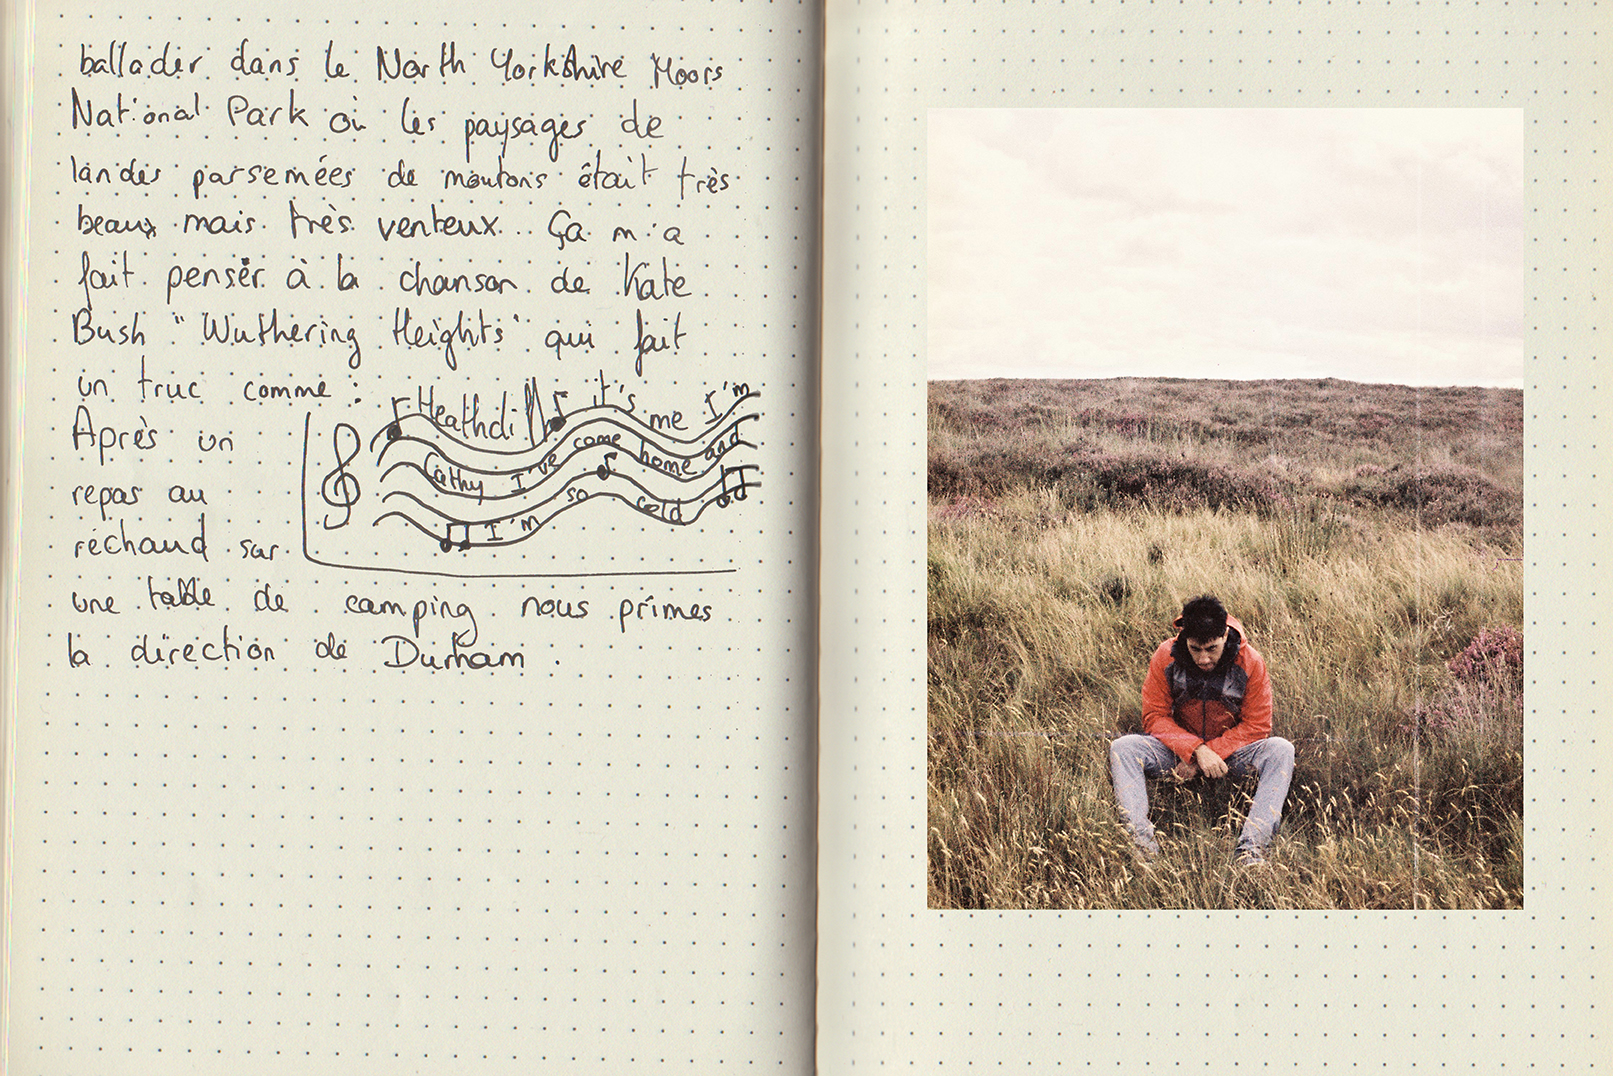 ballader dans le North Yorkshire Moors
National Park où les paysages de
landes parsemées de moutons était très
beaux mais très venteux... Ça m'a
fait penser à la chanson de Kate
Bush "Wuthering Heights" qui fait
un truc comme :
Heathcliff it's me I'm
Cathy I've come home and
I'm so cold
Après un
repas au
réchaud sur
une table de camping nous prîmes
la direction de Durham.